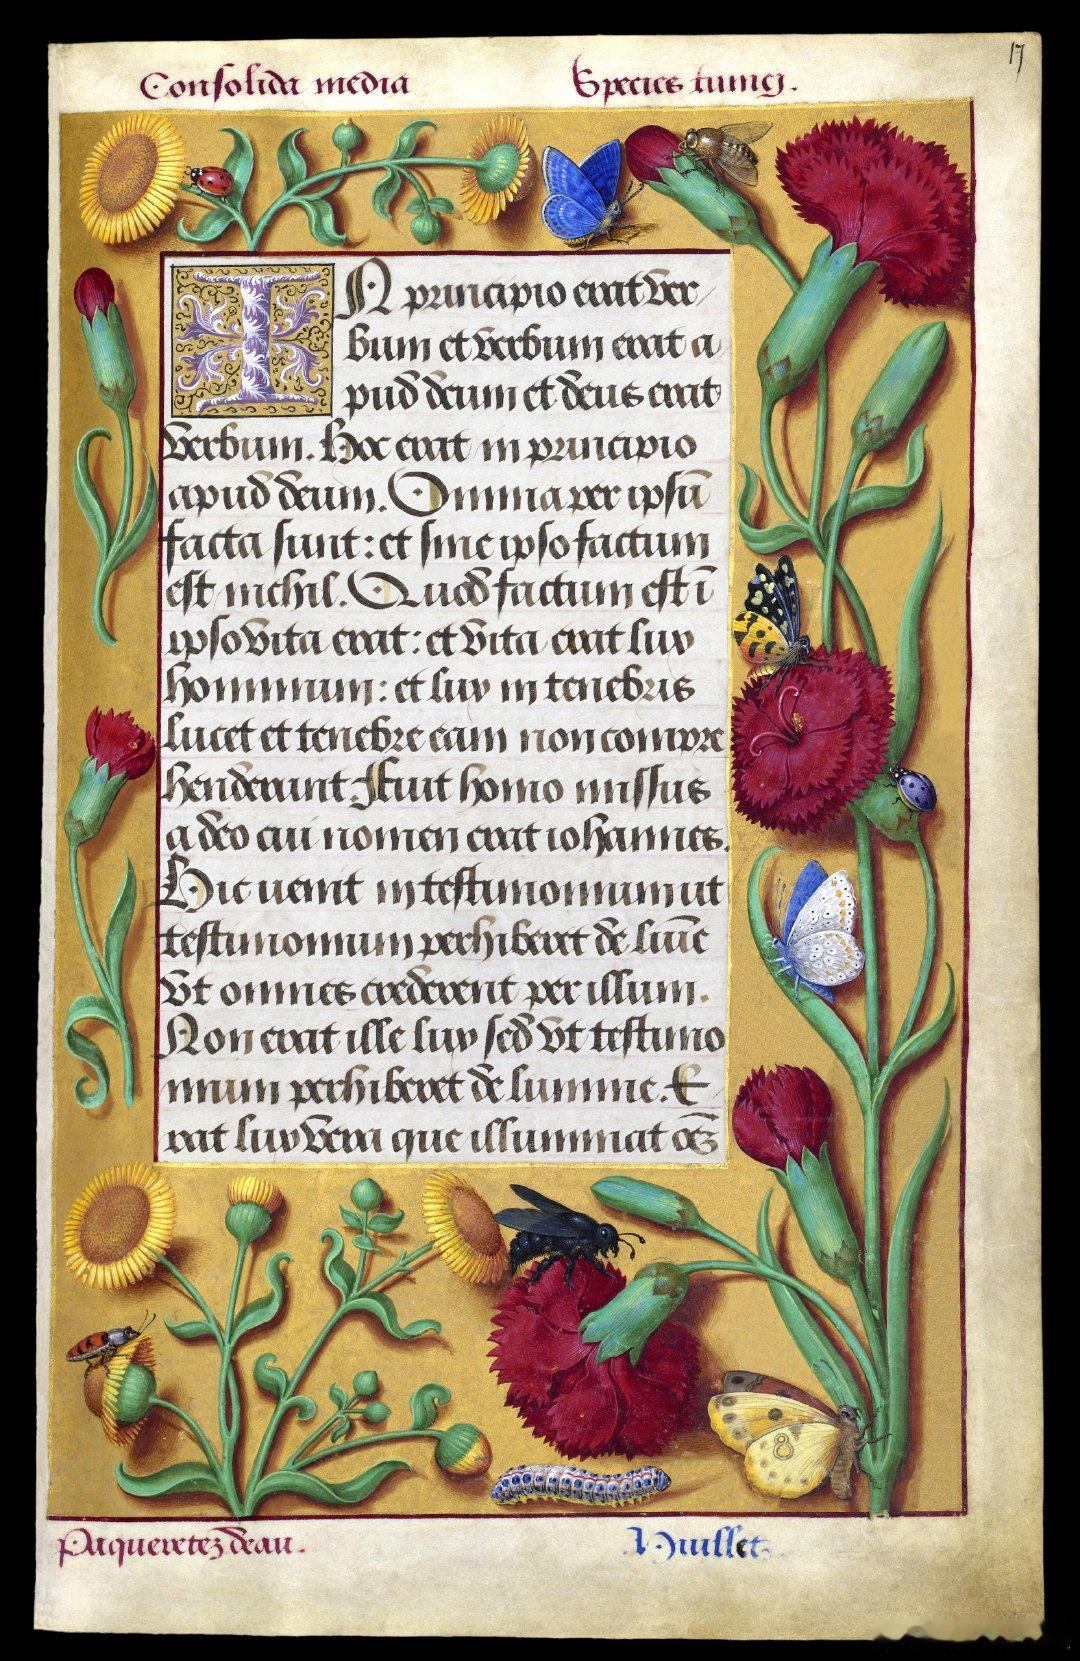 17
Consolida media
Species tunici.
IN principio erat ver
bum et verbum erat a
pud deum et deus erat
verbum. Hoc erat in principio
apud deum. Omnia per ipsū
facta sunt: et sine ipso factum
est nichil. Quod factum est ī
ipso vita erat: et vita erat lux
hominum: et lux in tenebris
lucet et tenebre eam non compre
henderunt Fuit homo missus
a deo cui nomen erat iohannes.
Hic venit in testimonium ut
testimonium perhiberet de lumīe
Vt omnes crederent per illum.
Non erat ille lux sed vt testimo
nium perhiberet de lumine. E
rat lux vera que illuminat oēz
Paqueretez deau.